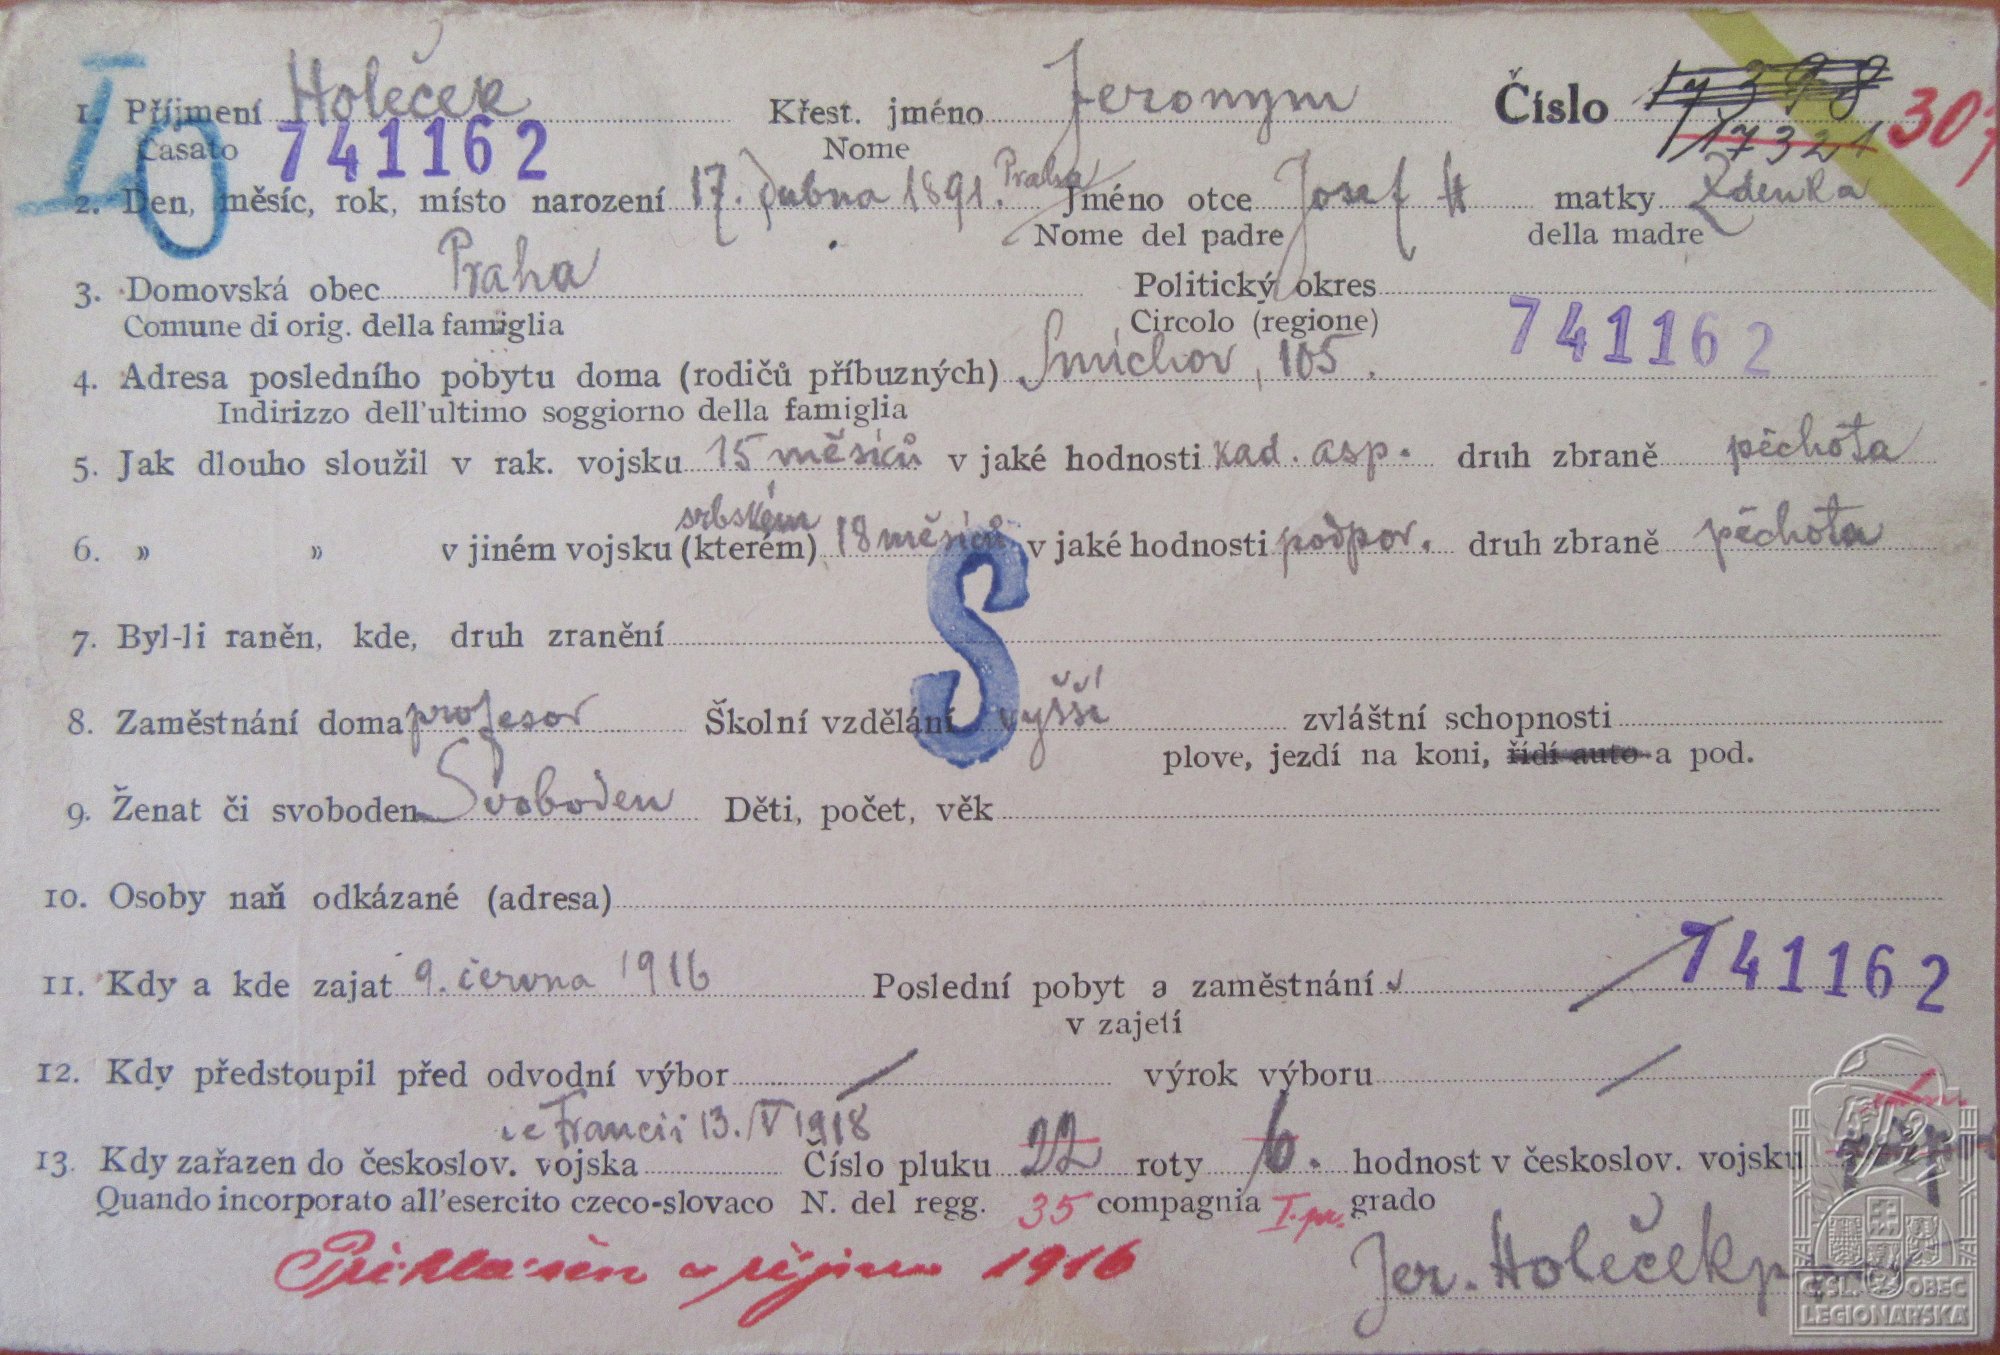 1. Příjmení Holeček Křest. jméno Jeronym Číslo 17398
Casato 741162 Nome 17321 307
2. Den, měsíc, rok, místo narození 17. dubna 1891. Praha Jméno otce Josef H matky Zdenka
Nome del padre della madre
3. Domovská obec Praha Politický okres
Comune di orig. della famiglia Circolo (regione) 741162
4. Adresa posledního pobytu doma (rodičů příbuzných) Smíchov, 105.
Indirizzo dell'ultimo soggiorno della famiglia
5. Jak dlouho sloužil v rak. vojsku 15 měsíců v jaké hodnosti kad. asp. druh zbraně pěchota
srbském
6. » » v jiném vojsku (kterém) 18 měsíců v jaké hodnosti podpor. druh zbraně pěchota
S
7. Byl-li raněn, kde, druh zranění
8. Zaměstnání doma profesor Školní vzdělání vyšší zvláštní schopnosti
plove, jezdí na koni, řídí auto a pod.
9. Ženat či svoboden Svoboden Děti, počet, věk
10. Osoby naň odkázané (adresa)
11. Kdy a kde zajat 9. června 1916 Poslední pobyt a zaměstnání 741162
v zajetí
12. Kdy předstoupil před odvodní výbor výrok výboru
ve Francii 13. V 1918
13. Kdy zařazen do českoslov. vojska Číslo pluku 22 roty 6. hodnost v českoslov. vojsku
Quando incorporato all'esercito czeco-slovaco N. del regg. 35 compagnia I. pr. grado
Přihlášen v říjnu 1916
Jer. Holeček
ČSL. OBEC
LEGIONÁŘSKÁ